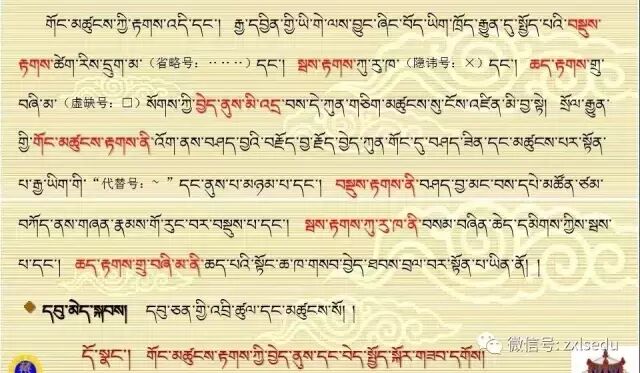 གོང་མཚུངས་ཀྱི་རྟགས་འདི་དང་། རྒྱ་དབྱིན་གྱི་ཡི་གེ་ལས་བྱུང་ཞིང་བོད་ཡིག་ཁྲོད་རྒྱུན་དུ་སྤྱོད་པའི་བསྡུས་
རྟགས་ཚེག་རིས་དྲུག་མ་（省略号：……）དང་། སྦས་རྟགས་ཀུ་རུ་ཁ་（隐讳号：×）དང་། ཆད་རྟགས་གྲུ་
བཞི་མ་（虚缺号：□）སོགས་ཀྱི་བྱེད་ནུས་མི་འདྲ་བས་དེ་ཀུན་གཅིག་མཚུངས་སུ་ངོས་འཛིན་མི་བྱ་སྟེ། སྲོལ་རྒྱུན་
གྱི་གོང་མཚུངས་རྟགས་ནི་འོག་ནས་བཤད་བྱའི་བརྗོད་བྱ་རྗོད་བྱེད་ཀུན་གོང་དུ་བཤད་ཟིན་དང་མཚུངས་པར་སྟོན་
པ་རྒྱ་ཡིག་གི་“代替号：~ ”དང་ནུས་པ་མཉམ་པ་དང་། བསྡུས་རྟགས་ནི་བཤད་བྱ་མང་བས་དཔེ་མཚོན་ཙམ་
བཀོད་ནས་གཞན་རྣམས་གོ་རུང་བར་བསྡུས་པ་དང་། སྦས་རྟགས་ཀུ་རུ་ཁ་ནི་བསམ་བཞིན་ཆེད་དམིགས་ཀྱིས་སྦས་
པ་དང་། ཆད་རྟགས་གྲུ་བཞི་མ་ནི་ཆད་པའི་སྟོང་ཆ་ཁ་གསབ་བྱེད་ཐབས་བྲལ་བར་སྟོན་པ་ཡིན་ནོ། །
དབུ་མེད་སྐབས། དབུ་ཅན་གྱི་འབྲི་ཚུལ་དང་མཚུངས་སོ། །
དོ་སྣང་། གོང་མཚུངས་རྟགས་ཀྱི་བྱེད་ནུས་དང་བེད་སྤྱོད་སྐོར་གཟབ་དགོས།
微信号：zxlsedu